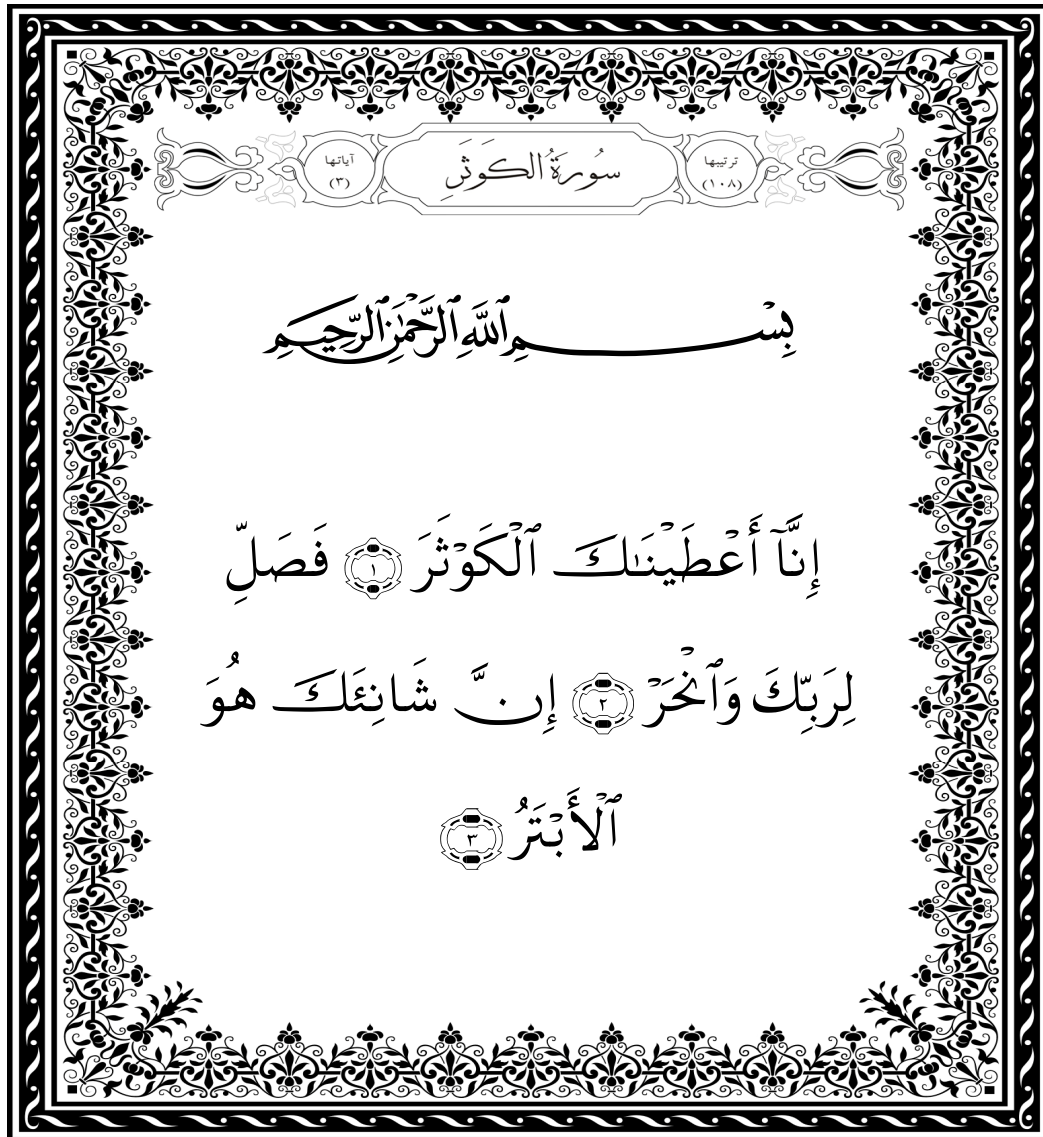 ترتيبها
(١٠٨)
سُورَةُ الكَوۡثَرِ
آياتها
(٣)
بِسۡمِ ٱللَّهِ ٱلرَّحۡمَٰنِ ٱلرَّحِيمِ
إِنَّآ أَعۡطَيۡنَٰكَ ٱلۡكَوۡثَرَ ١ فَصَلِّ
لِرَبِّكَ وَٱنۡحَرۡ ٢ إِنَّ شَانِئَكَ هُوَ
ٱلۡأَبۡتَرُ ٣